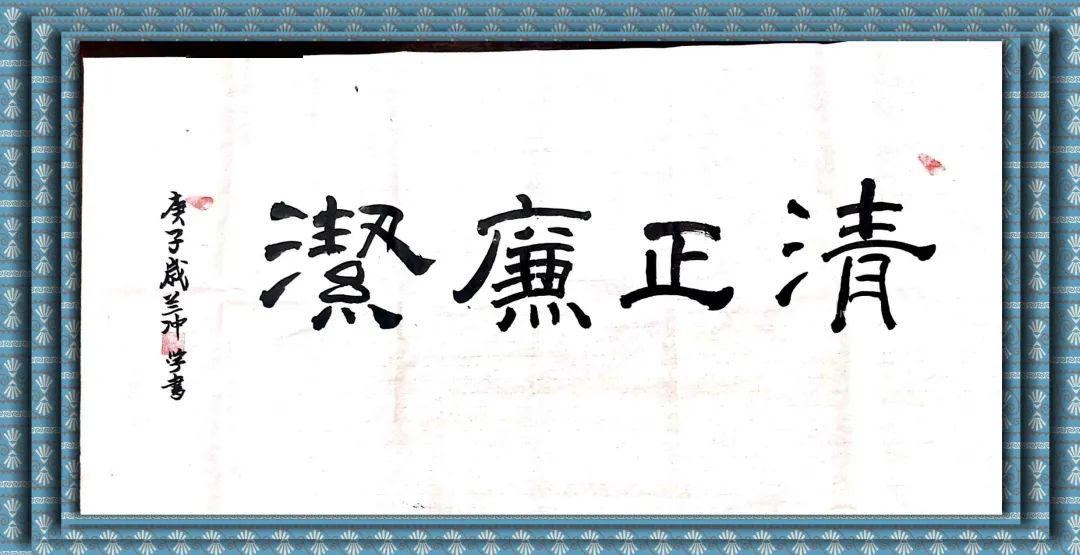 清正廉潔
庚子歲兰冲学书